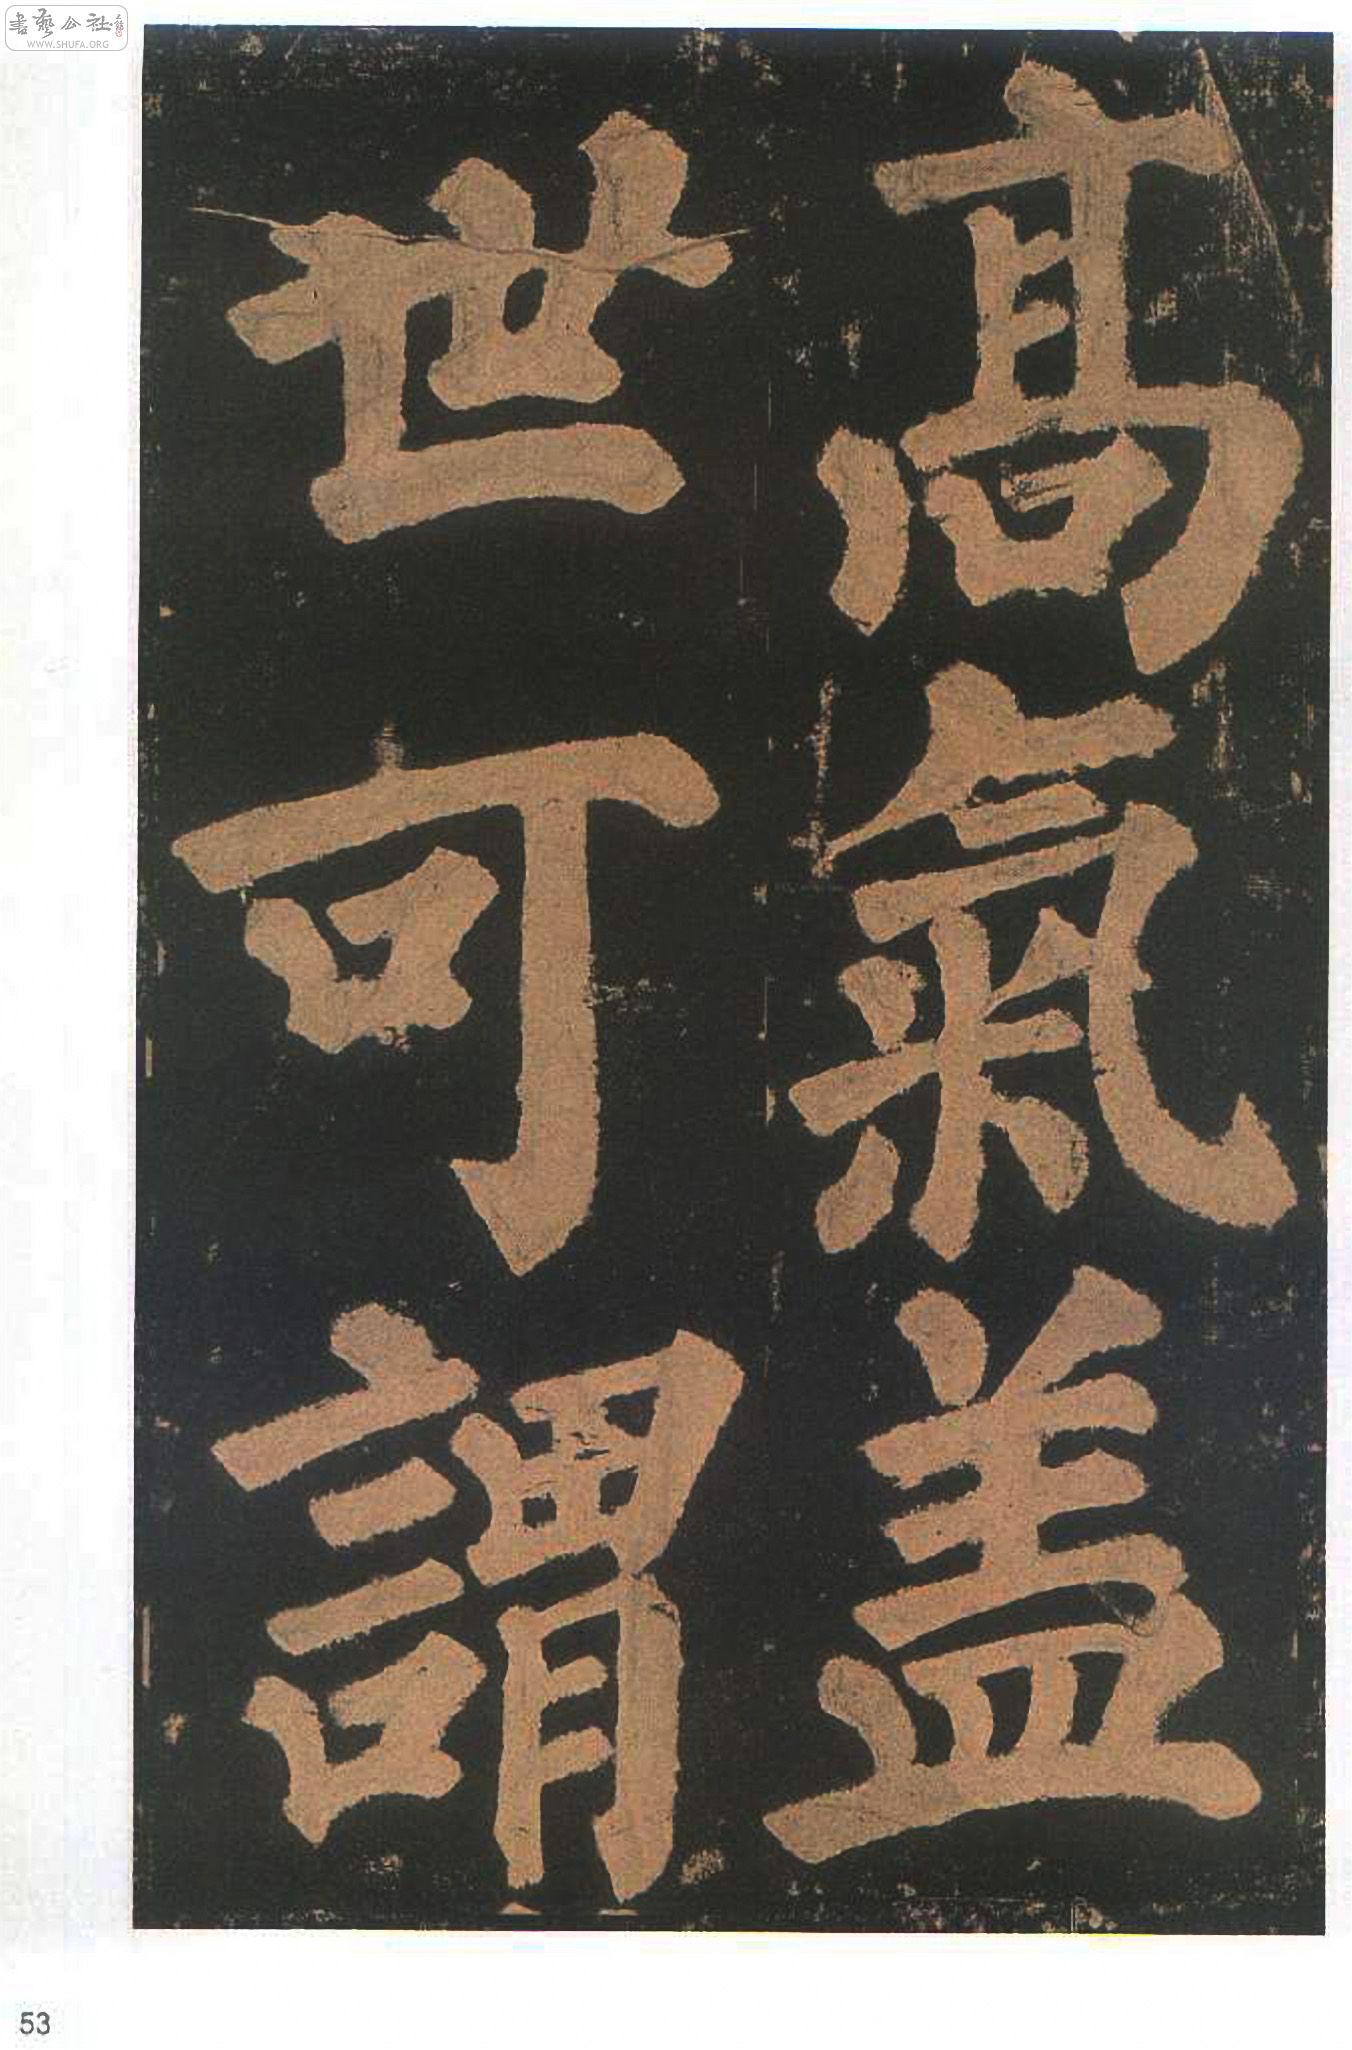 髙氣盖
世可謂
53
書藝公社
WWW.SHUFA.ORG